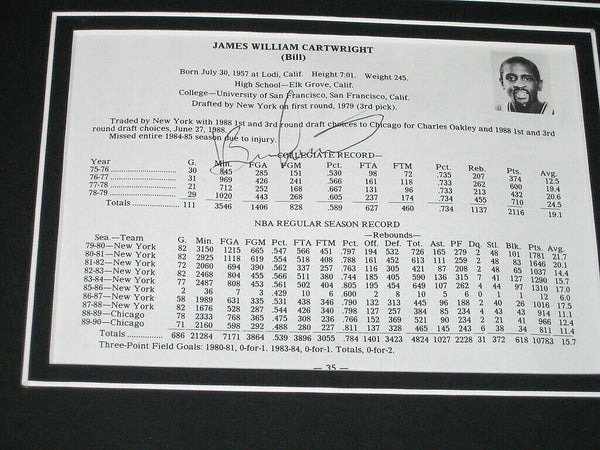 JAMES WILLIAM CARTWRIGHT
(Bill)
Born July 30, 1957 at Lodi, Calif. Height 7:01. Weight 245.
High School—Elk Grove, Calif.
College—University of San Francisco, San Francisco, Calif.
Drafted by New York on first round, 1979 (3rd pick).
Traded by New York with 1988 1st and 3rd round draft choices to Chicago for Charles Oakley and 1988 1st and 3rd
round draft choices, June 27, 1988.
Missed entire 1984-85 season due to injury.
—COLLEGIATE RECORD—
Year G. Min. FGA FGM Pct. FTA FTM Pct. Reb. Pts. Avg.
75-76 30 845 285 151 .530 98 72 .735 207 374 12.5
76-77 31 969 426 241 .566 161 118 .733 262 600 19.4
77-78 21 712 252 168 .667 131 96 .733 213 432 20.6
78-79 29 1020 443 268 .605 237 174 .734 455 710 24.5
Totals 111 3546 1406 828 .589 627 460 .734 1137 2116 19.1
NBA REGULAR SEASON RECORD
—Rebounds—
Sea.—Team G. Min. FGA FGM Pct. FTA FTM Pct. Off. Def. Tot. Ast. PF Dq. Stl. Blk. Pts. Avg.
79-80—New York 82 3150 1215 665 .547 566 451 .797 194 532 726 165 279 2 48 101 1781 21.7
80-81—New York 82 2925 1118 619 .554 518 408 .788 161 452 613 111 259 2 48 83 1646 20.1
81-82—New York 72 2060 694 390 .562 337 257 .763 116 305 421 87 208 2 48 65 1037 14.4
82-83—New York 82 2468 804 455 .566 511 380 .744 185 405 590 136 315 7 41 127 1290 15.7
83-84—New York 77 2487 808 453 .561 502 404 .805 195 454 649 107 262 4 44 97 1310 17.0
85-86—New York 2 36 7 3 .429 10 6 .600 2 8 10 5 6 0 1 1 12 6.0
86-87—New York 58 1989 631 335 .531 438 346 .790 132 313 445 96 188 2 40 26 1016 17.5
87-88—New York 82 1676 528 287 .544 426 340 .798 127 257 384 85 234 4 43 43 914 11.1
88-89—Chicago 78 2333 768 365 .475 308 236 .766 152 369 521 90 234 2 21 41 966 12.4
89-90—Chicago 71 2160 598 292 .488 280 227 .811 137 328 465 145 243 6 38 34 811 11.4
Totals 686 21284 7171 3864 .539 3896 3055 .784 1401 3423 4824 1027 2228 31 372 618 10783 15.7
Three-Point Field Goals: 1980-81, 0-for-1. 1983-84, 0-for-1. Totals, 0-for-2.
— 35 —